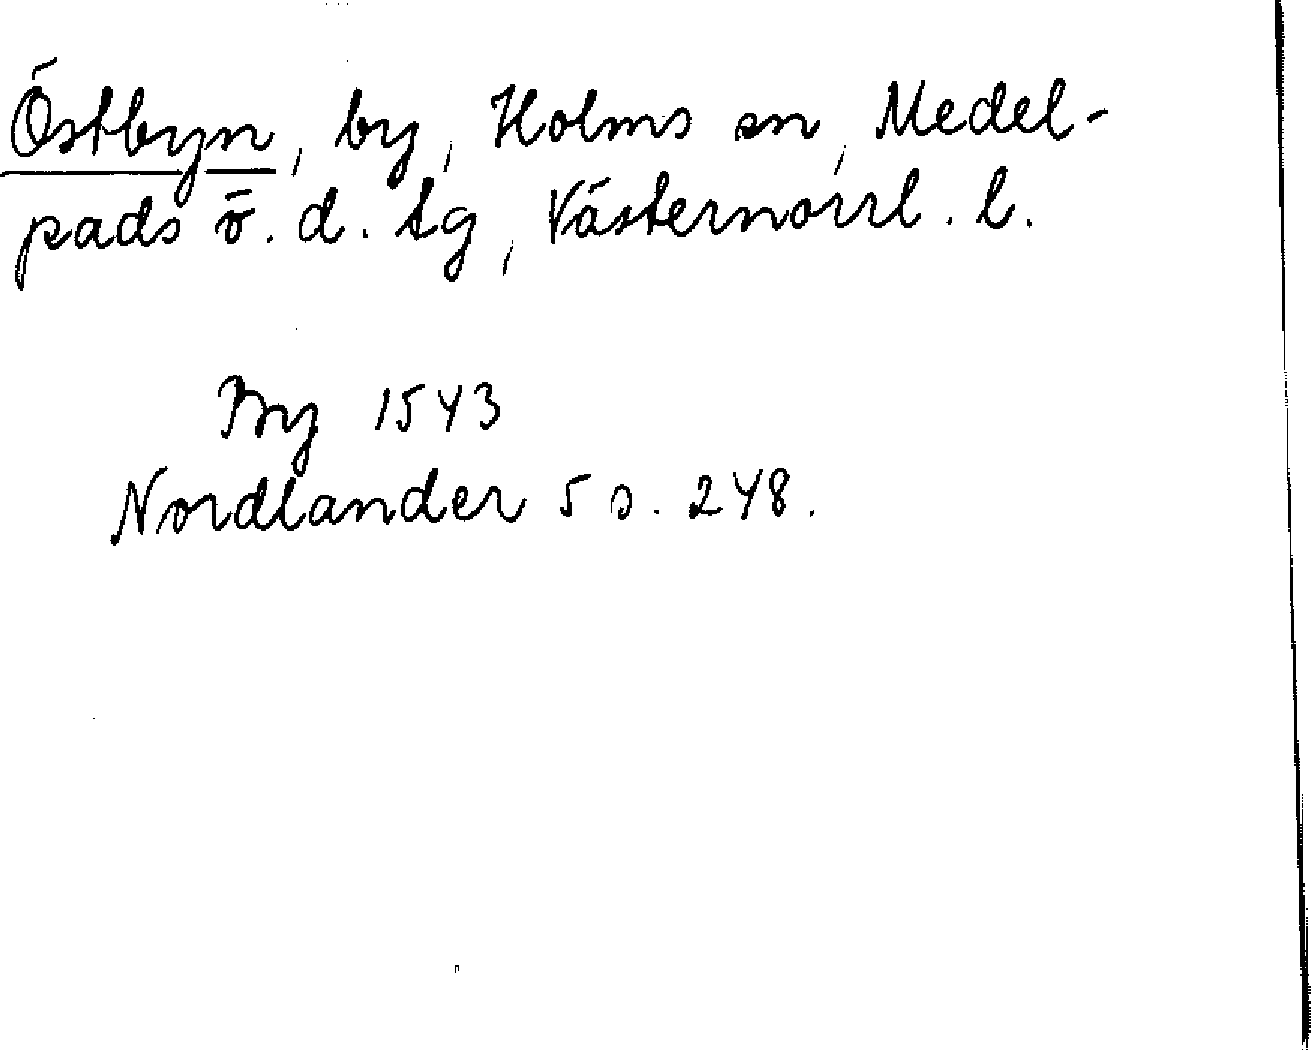 Östbyn, by, Holms sn, Medel-
pads ö. d. tg, Västernorrl. l.
By 1543
Nordlander 5 s. 248.